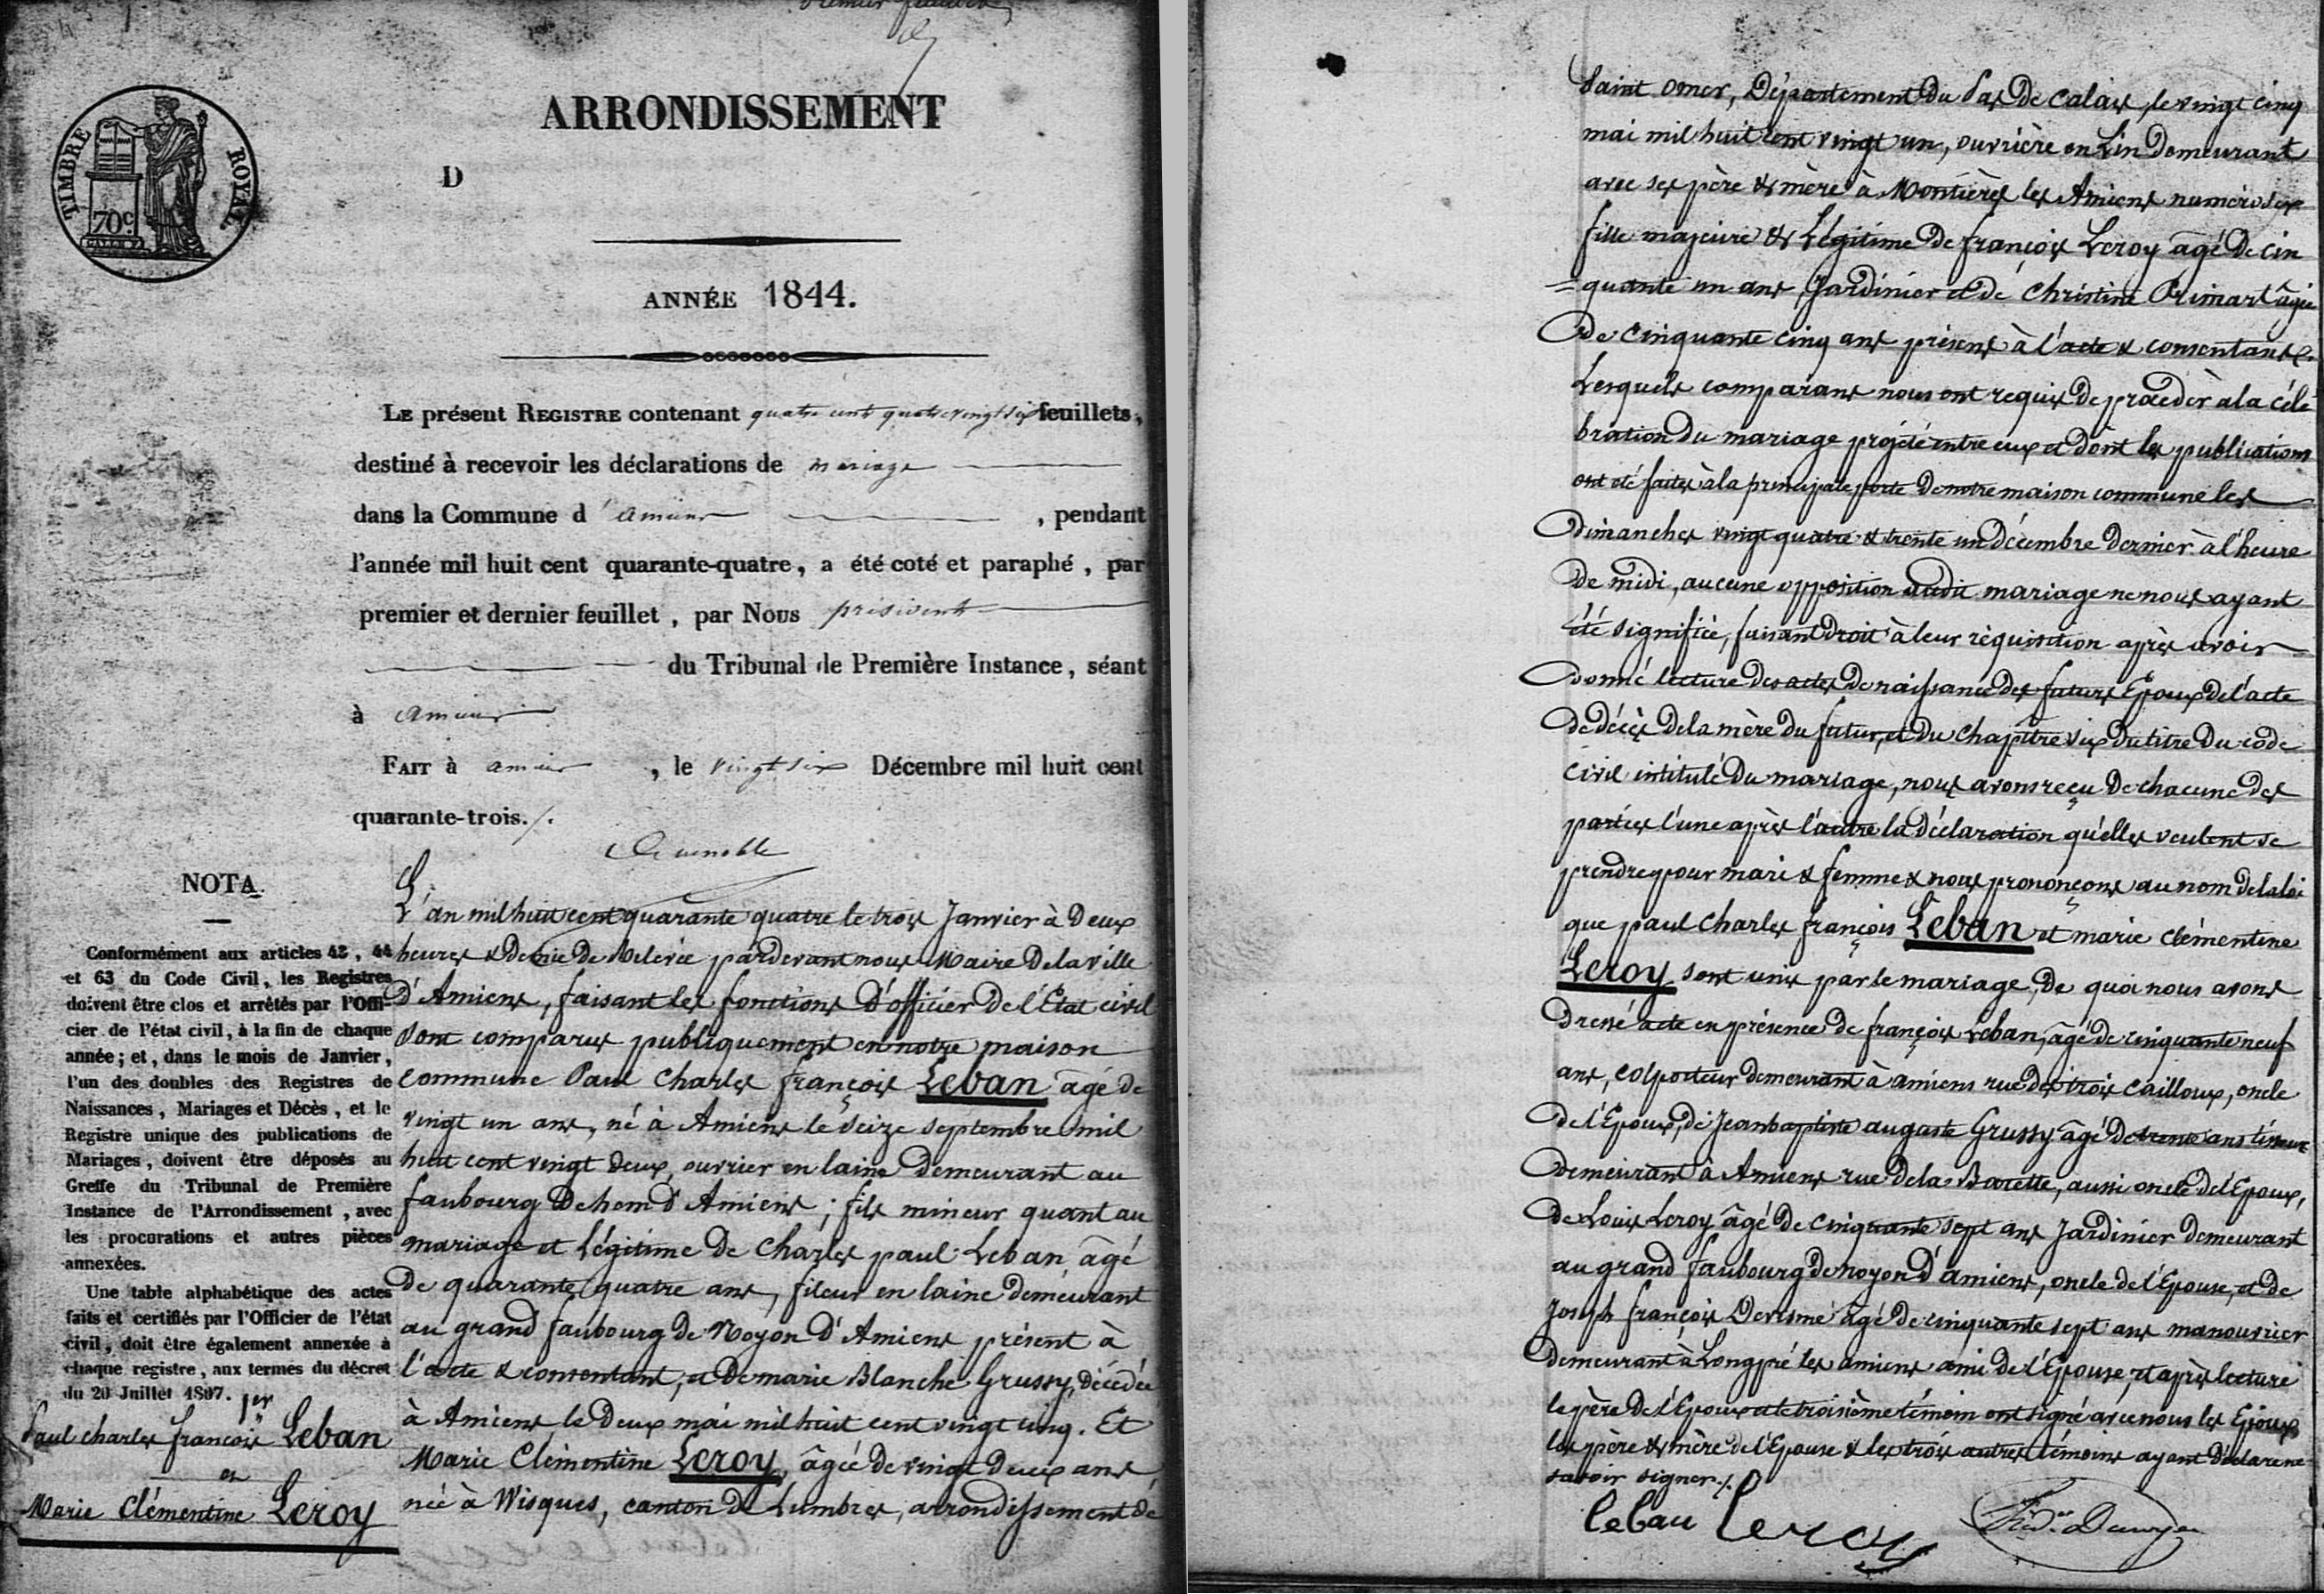 premier feuillet
TIMBRE ROYAL
70c
ARRONDISSEMENT
D
ANNÉE 1844.
LE présent REGISTRE contenant quatre cent quatrevingt six feuillets,
destiné à recevoir les déclarations de mariage
dans la Commune d'amiens , pendant
l'année mil huit cent quarante-quatre, a été coté et paraphé, par
premier et dernier feuillet, par Nous président
du Tribunal de Première Instance, séant
à amiens
FAIT à amiens , le vingt six Décembre mil huit cent
quarante-trois./.
NOTA.
Conformément aux articles 43, 44
et 63 du Code Civil, les Registres
doivent être clos et arrêtés par l'Offi-
cier de l'état civil, à la fin de chaque
année; et, dans le mois de Janvier,
l'un des doubles des Registres de
Naissances, Mariages et Décès, et le
Registre unique des publications de
Mariages, doivent être déposés au
Greffe du Tribunal de Première
Instance de l'Arrondissement, avec
les procurations et autres pièces
annexées.
Une table alphabétique des actes
faits et certifiés par l'Officier de l'état
civil, doit être également annexée à
chaque registre, aux termes du décret
du 20 Juillet 1807.
1er
Paul charles françois Leban
et
Marie Clémentine Leroy
L'an mil huit cent quarante quatre le trois Janvier à Deux
heures & Demie de Relevée pardevant nous Maire Dela ville
d'Amiens, faisant les fonctions D'officier de l'Etat civil
Sont comparus publiquement en notre maison
commune Paul Charles françois Leban âgé de
vingt un ans, né à Amiens le Seize septembre mil
huit cent vingt deux, ouvrier en laine demeurant au
faubourg Dehem d'Amiens; fils mineur quant au
mariage et Légitime de Charles paul Leban âgé
de quarante quatre ans, fileur en laine demeurant
au grand faubourg de Noyon d'Amiens présent à
l'acte & consentant, et De marie Blanche Grussy, décédée
à Amiens le Deux mai mil huit cent vingt cinq. Et
Marie Clémentine Leroy, âgée de vingt deux ans
née à Wisques, canton de Lumbres, arrondissement de
Saint omer, Département Du Pas De calais, le vingt cinq
mai mil huit cent vingt un, ouvrière en Lin Demeurant
avec ses père & mère à Montières les Amiens numéro six
fille majeure & Légitime De françois Leroy âgé De cin
=quante un ans Jardinier et de Christine Primart âgée
De Cinquante cinq ans présens à l'acte & consentans
Lesquels comparans nous ont requis De procéder à la célé
bration Du mariage projeté entre eux et dont les publications
ont été faites à la principale porte De notre maison commune les
Dimanches vingt quatre & trente un décembre Dernier à l'heure
De midi, aucune opposition audit mariage ne nous ayant
été signifiée, faisant droit à leur réquisition après avoir
Donné lecture des actes De naissance des futurs Epoux de l'acte
De décès De la mère Du futur, et du Chapitre six Du titre Du code
civil intitulé Du mariage, nous avons reçu De chacune des
parties l'une après l'autre la Déclaration qu'elles veulent se
prendre pour mari & femme & nous prononçons au nom de la loi
que paul Charles françois Leban et marie Clémentine
Leroy sont unis par le mariage, De quoi nous avons
Dressé acte en présence de françois Leban, âgé de cinquante neuf
ans, colporteur demeurant à amiens rue des trois Cailloux, oncle
De l'Epoux, de Jean baptiste auguste Grussy âgé de trente ans tisseur
Demeurant à Amiens rue De la Barette, aussi oncle de l'Epoux,
De Louis Leroy âgé de cinquante sept ans Jardinier demeurant
au grand faubourg de noyon d'amiens, oncle de l'Epouse, et de
Joseph françois Devisme âgé de cinquante sept ans manouvrier
Demeurant à Longpré les amiens ami de l'Epouse, et après lecture
le père De l'Epoux et le troisième témoin ont signé avec nous les Epoux
les père & mère de l'Epouse & les trois autres témoins ayant Déclaré ne
savoir signer./.
leban Leroy